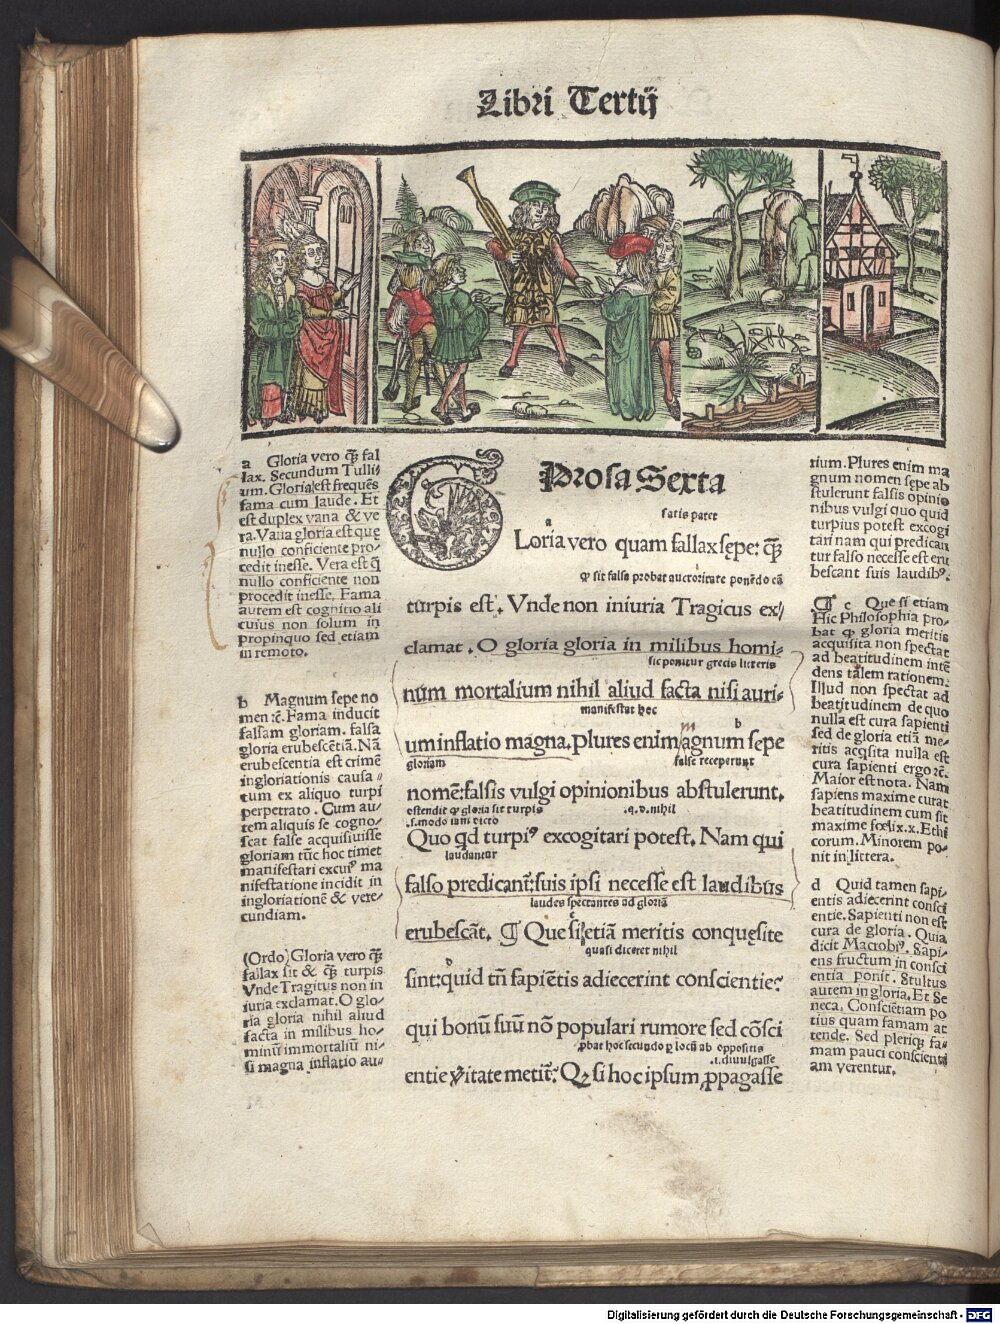 Libri Tertij
a Gloria vero q̄ȝ fal
lax. Secundum Tulli⸗
um. Gloria est frequēs
fama cum laude. Et
est duplex vana & ve
ra. Vana gloria est quę
nullo conficiente pro⸗
cedit inesse. Vera est q̄
nullo conficiente non
procedit inesse. Fama
autem est cognitio ali
cuius non solum in
propinquo sed etiam
in remoto.
b Magnum sepe no
men ⁊c̄. Fama inducit
falsam gloriam. falsa
gloria erubescētiā. Nā
erubescentia est crimē
ingloriationis causa⸗
tum ex aliquo turpi
perpetrato. Cum au⸗
tem aliquis se cogno⸗
scat false acquisiuisse
gloriam tūc hoc timet
manifestari ex cuiꝰ ma
nifestatione incidit in
ingloriationē & vere⸗
cundiam.
(Ordo) Gloria vero q̄ȝ
fallax sit & q̄ȝ turpis
Vnde Tragitus non in
iuria exclamat. O glo⸗
ria gloria nihil aliud
facta in milibus ho⸗
minū immortaliū ni⸗
si magna inflatio au⸗
Prosa Sexta
satis patet
a
GLoria vero quam fallax sępe: q̄ȝ
ꝙ sit falsa probat auctoritate ponēdo cā
turpis est. Vnde non iniuria Tragicus ex⸗
clamat. O gloria gloria in milibus homi⸗
sic ponitur grecis litteris
num mortalium nihil aliud facta nisi auri⸗
manifestat hoc
m b
um inflatio magna. Plures enim agnum sępe
gloriam false receperunt
nomē: falsis vulgi opinionibus abstulerunt.
ostendit ꝙ gloria sit turpis .q.d. nihil
.s. modo iam dicto
Quo qd turpiꝰ excogitari potest. Nam qui
laudantur
falso predicanť: suis ipsi necesse est laudibus
laudes spectantes ad gloriā
c
erubescāt. ¶ Que si etiā meritis conquęsite
quasi diceret nihil
d
sint: quid tn̄ sapiētis adiecerint conscientie?
qui bonū suū nō populari rumore sed cōsci
ꝓbat hoc secundo ꝑ locū ab oppositis
.i. diuulgasse
entie v̓itate metiť. Qꝫ si hoc ipsum ꝓpagasse
rium. Plures enim ma
gnum nomen sępe ab
stulerunt falsis opinio
nibus vulgi quo quid
turpius potest excogi
tari nam qui predican
tur falso necesse est eru
bescant suis laudibꝰ.
¶ c Que si etiam
Hic Philosophia pro⸗
bat ꝙ gloria meritis
acquisita non spectat
ad beatitudinem intē
dens talem rationem.
Illud non spectat ad
beatitudinem de quo
nulla est cura sapienti
sed de gloria etiā me⸗
ritis acq̄sita nulla est
cura sapienti ergo ⁊c̄.
Maior est nota. Nam
sapiens maxime curat
beatitudinem cum sit
maxime fœlix. x. Ethi
corum. Minorem po⸗
nit in littera.
d Quid tamen sapi⸗
entis adiecerint consci
entie. Sapienti non est
cura de gloria. Quia
dicit Macrobiꝰ. Sapi⸗
ens fructum in consci
entia ponit. Stultus
autem in gloria. Et Se
neca. Consciētiam po
tius quam famam at
tende. Sed pleriqꝫ fa⸗
mam pauci conscienti
am verentur.
Digitalisierung gefördert durch die Deutsche Forschungsgemeinschaft - DFG